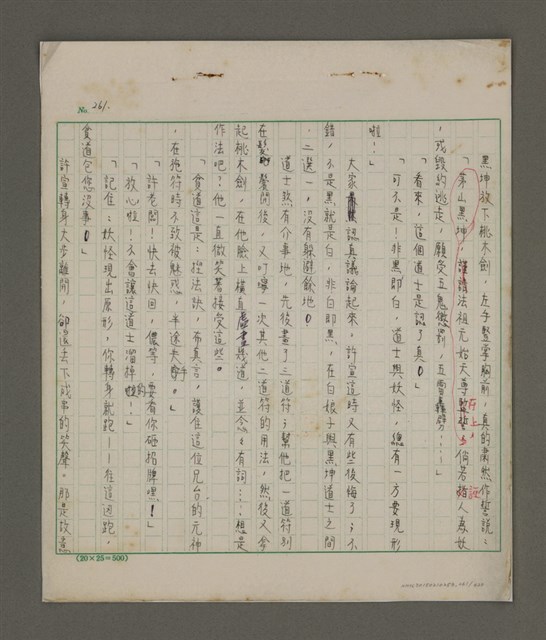 No. 261.
黑坤放下桃木劍,左手豎掌胸前,真的肅然作誓說:
「茅山黑坤,謹請法祖元始天尊在上,倘若指人為妖
,或毀約逃走,願受五鬼懲罰,五雷轟劈……」
「看來,這個道士是認了真。」
「可不是!非黑即白,道士與妖怪,總有一方要現形
啦!」
大家認真議論起來,許宣這時又有些後悔了;不
錯,不是黑就是白,非白即黑,在白娘子與黑坤道士之間
,二選一,沒有躲避餘地。
道士煞有介事地,先後畫了三道符;幫他把一道符別
在髮髻間後,又叮嚀一次其他二道符的用法,然後又拿
起桃木劍,在他臉上橫直虛畫幾道,並念念有詞……想是
作法吧?他一直微笑著接受這些。
「貧道這是:捻法訣,布真言,護住這位兄台的元神
,在施符時不致被魅惑,半途失手。」
「許老闆!快去快回,儂等,要看你砸招牌嘿!」
「放心啦!不會讓這道士溜掉的!」
「記住:妖怪現出原形,你轉身就跑——往這廂跑,
貧道包您沒事。」
許宣轉身大步離開,卻丟下或弟的笑聲。那是故意
(20×25=500)